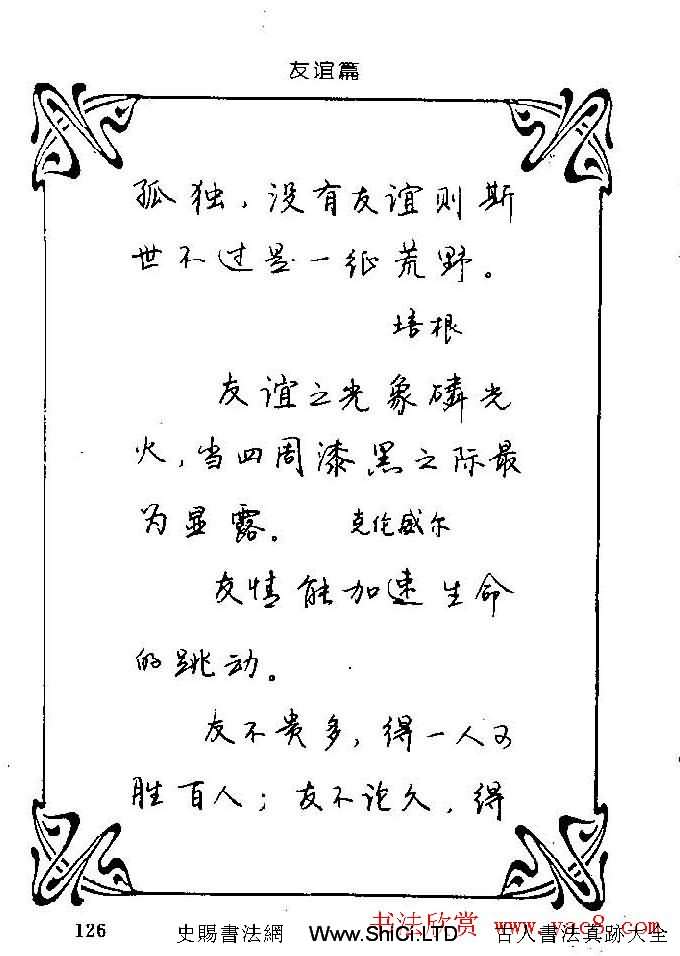 友谊篇
孤独，没有友谊则斯
世不过是一纸荒野。
培根
友谊之光象磷光
火，当四周漆黑之际最
为显露。 克伦威尔
友情能加速生命
的跳动。
友不贵多，得一人可
胜百人；友不论久，得
126 史賜書法網 www.ShiCi.LTD 古人書法真跡大全
书法欣赏 www.yac8.com